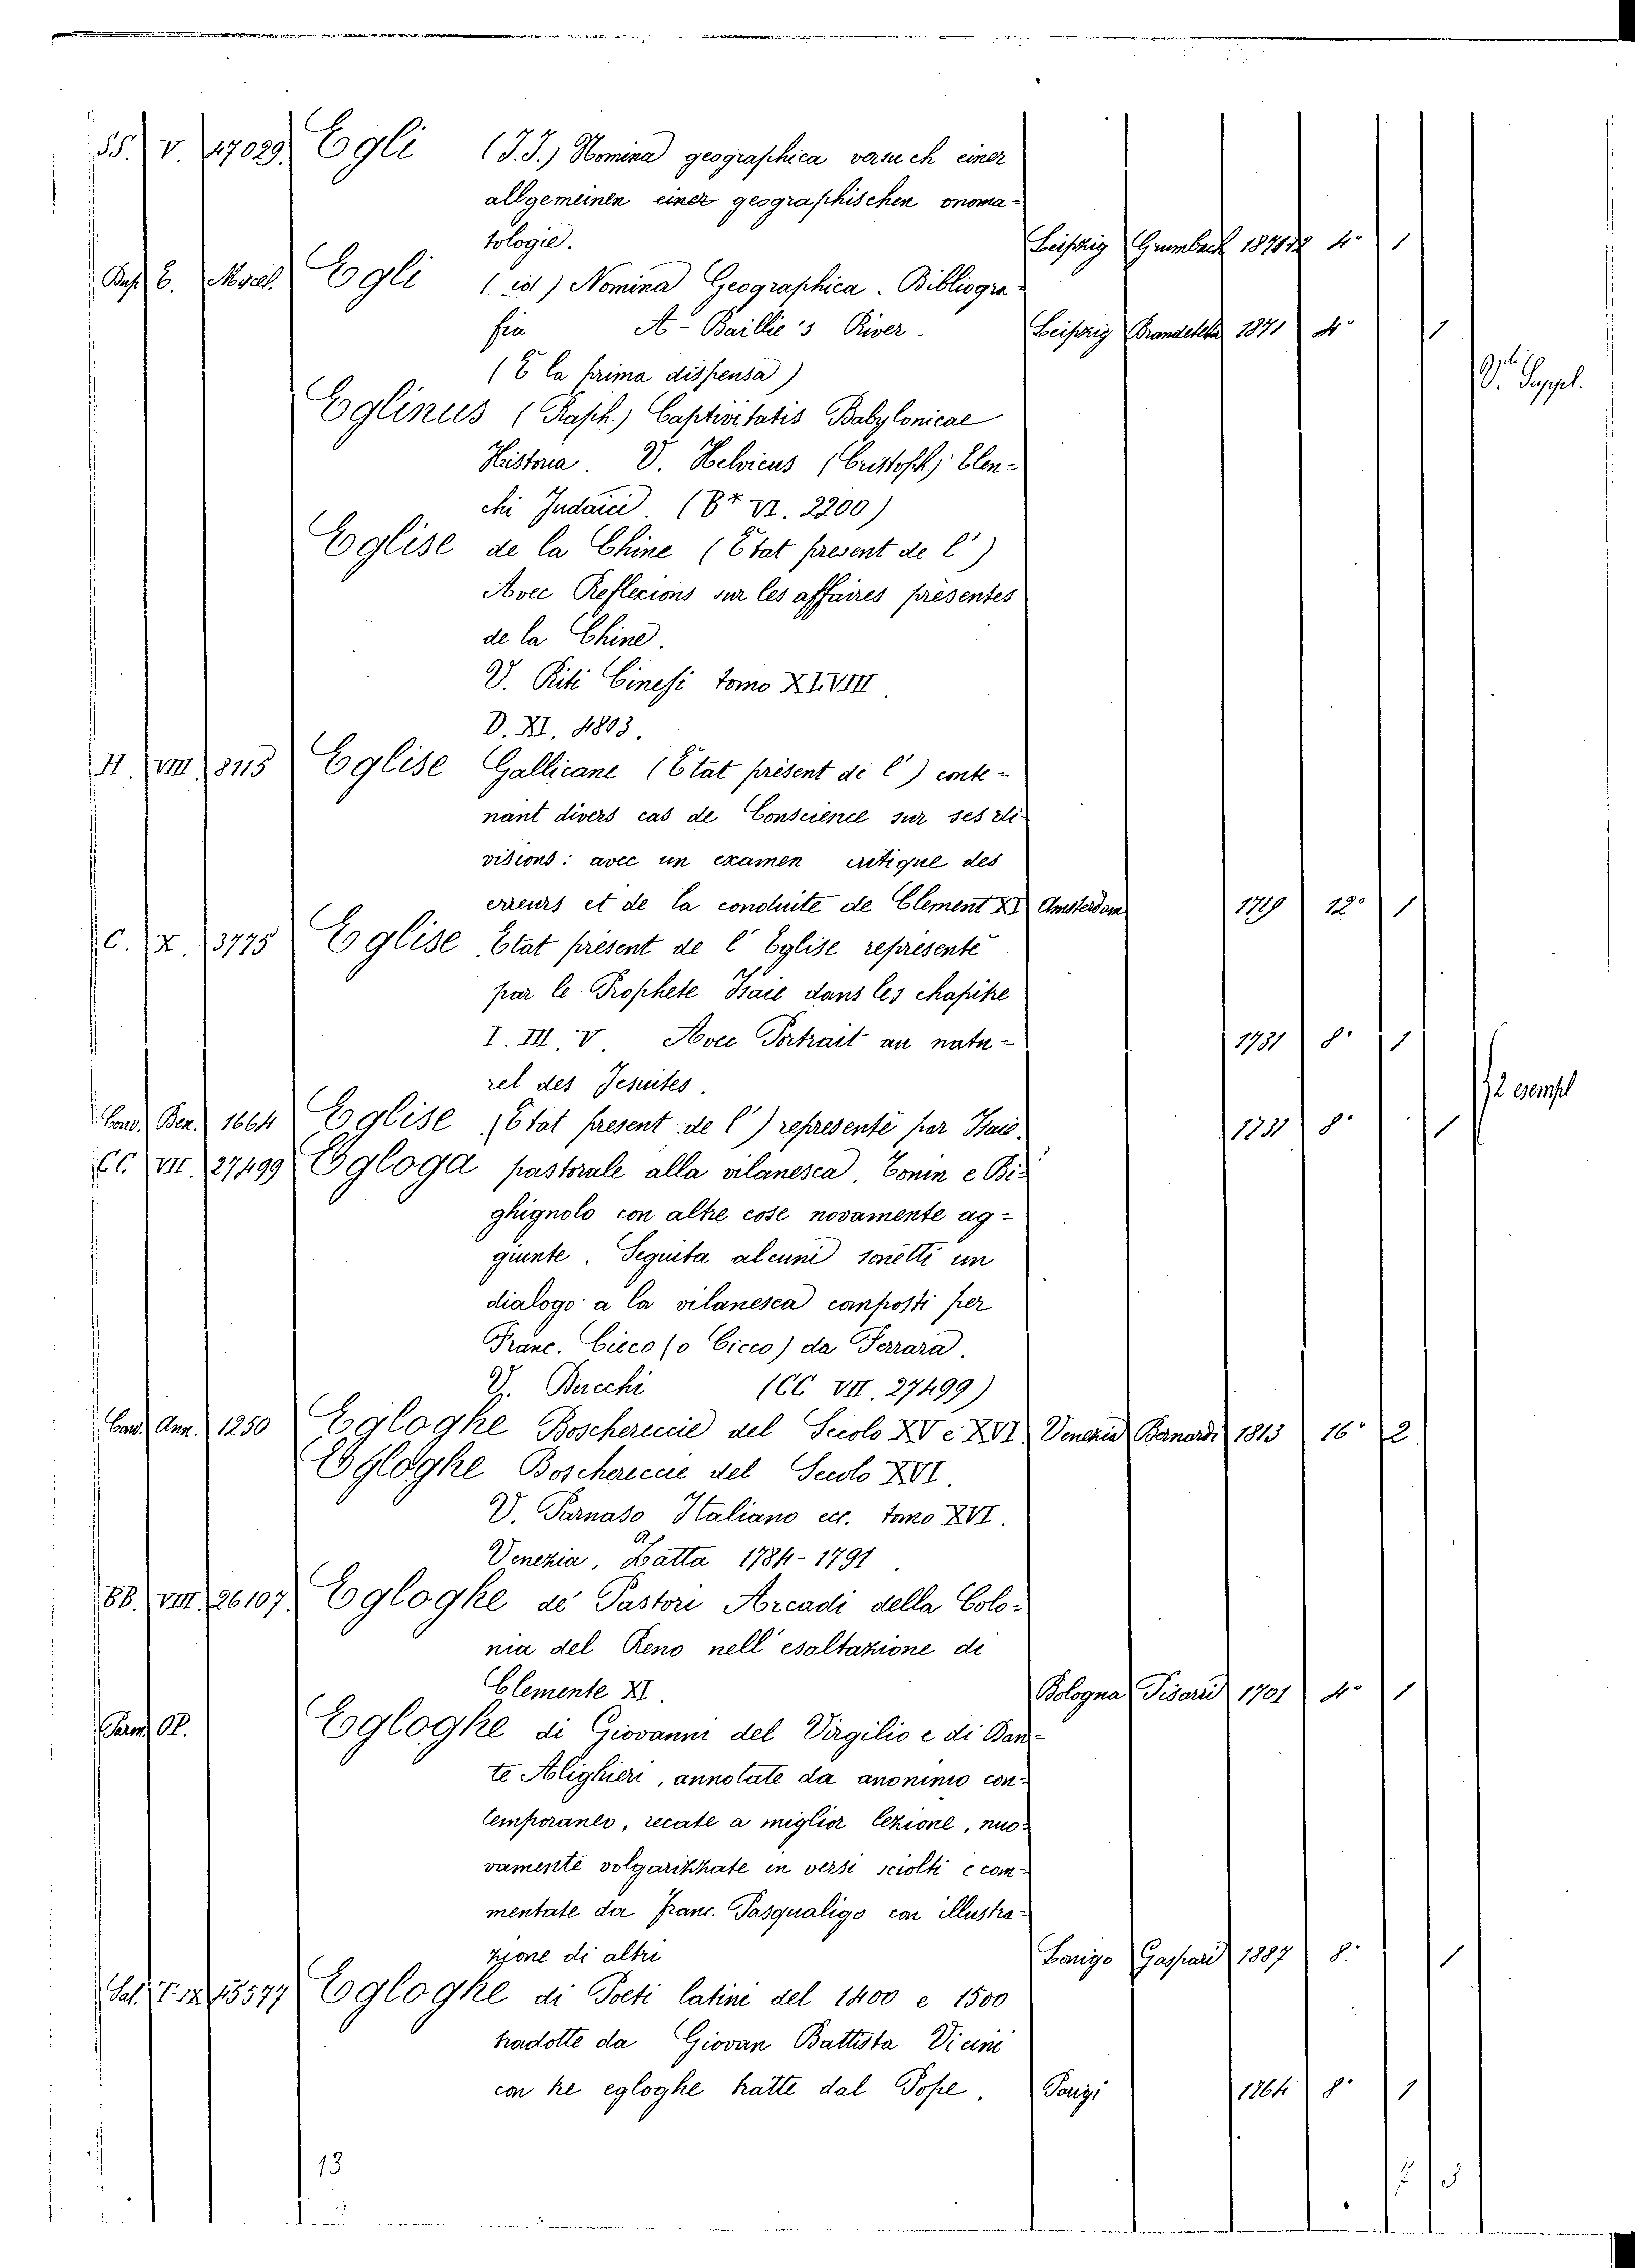 SS. V. 17029. Egli (J. J.) Nomina geographica versuch einer
allgemeinen einer geographischen onoma-
tologie. Leipzig 4° 1
Egli (id) Nomina Geographica. Bibliogra-
fia A - Baillie's River. Leipzig 1871 4° 1
(È la prima dispensa) V. Suppl.
Eglinus (Raph.) Captivitatis Babylonicae
Historia. V. Helvicus (Cristoph): Elen-
chi Judaici. 2200)
Eglise de la Chine (Etat present de l')
Avec Reflexions sur les affaires présentes
de la Chine.
V. Riti Cinesi tomo XLVIII.
D. XI. 4803.
II. VIII. 8115 Eglise Gallicane (Etat présent de l') conte-
nant divers cas de Conscience sur ses di-
visions: avec un examen critique des
erreurs et de la conduite de Clement XI Amsterdam 1719 12° 1
C. X. 3775 Eglise Etat present de l'Eglise representé
par le Prophete Isaie dans les chapitre
I. III. V. Avec Portrait au natu- 1731 8° 1
rel des Jesuites. 2 esempl
Cand. Ben. 1664 Eglise (Etat present de l') representé par Isaie. 1731 8° 1
CC VII. 27499 Egloga pastorale alla vilanesca, Tonin e Bi-
ghignolo con altre cose novamente ag-
giunte. Seguita alcuni sonetti un
dialogo a la vilanesca conposti per
Franc. Cieco (o Cicco) da Ferrara.
V. Bucchi (CC VII. 27499)
Cand. Ann. 1250 Egloghe Boschereccie del Secolo XV e XVI. Venezia Bernardi 1813 16° 2
Egloghe Boschereccie del Secolo XVI.
V. Parnaso Italiano ecc. tomo XVI.
Venezia, Zatta 1784-1791.
BB. VIII. 26107. Egloghe de' Pastori Arcadi della Colo-
nia del Reno nell'esaltazione di
Clemente XI. Bologna Pisarri 1701 4° 1
Egloghe di Giovanni del Virgilio e di Dan-
te Alighieri, annotate da anonimo con-
temporaneo, recate a miglior lezione, nuo-
vamente volgarizzate in versi sciolti e com-
mentate da Franc. Pasqualigo con illustra-
zione di altri Lonigo Gaspari 1887 8° 1
Sal. T. IX 15577 Egloghe di Poeti latini del 1400 e 1500
tradotte da Giovan Battista Vicini
con tre egloghe tratte dal Pope. Parigi 1764 8° 1
13